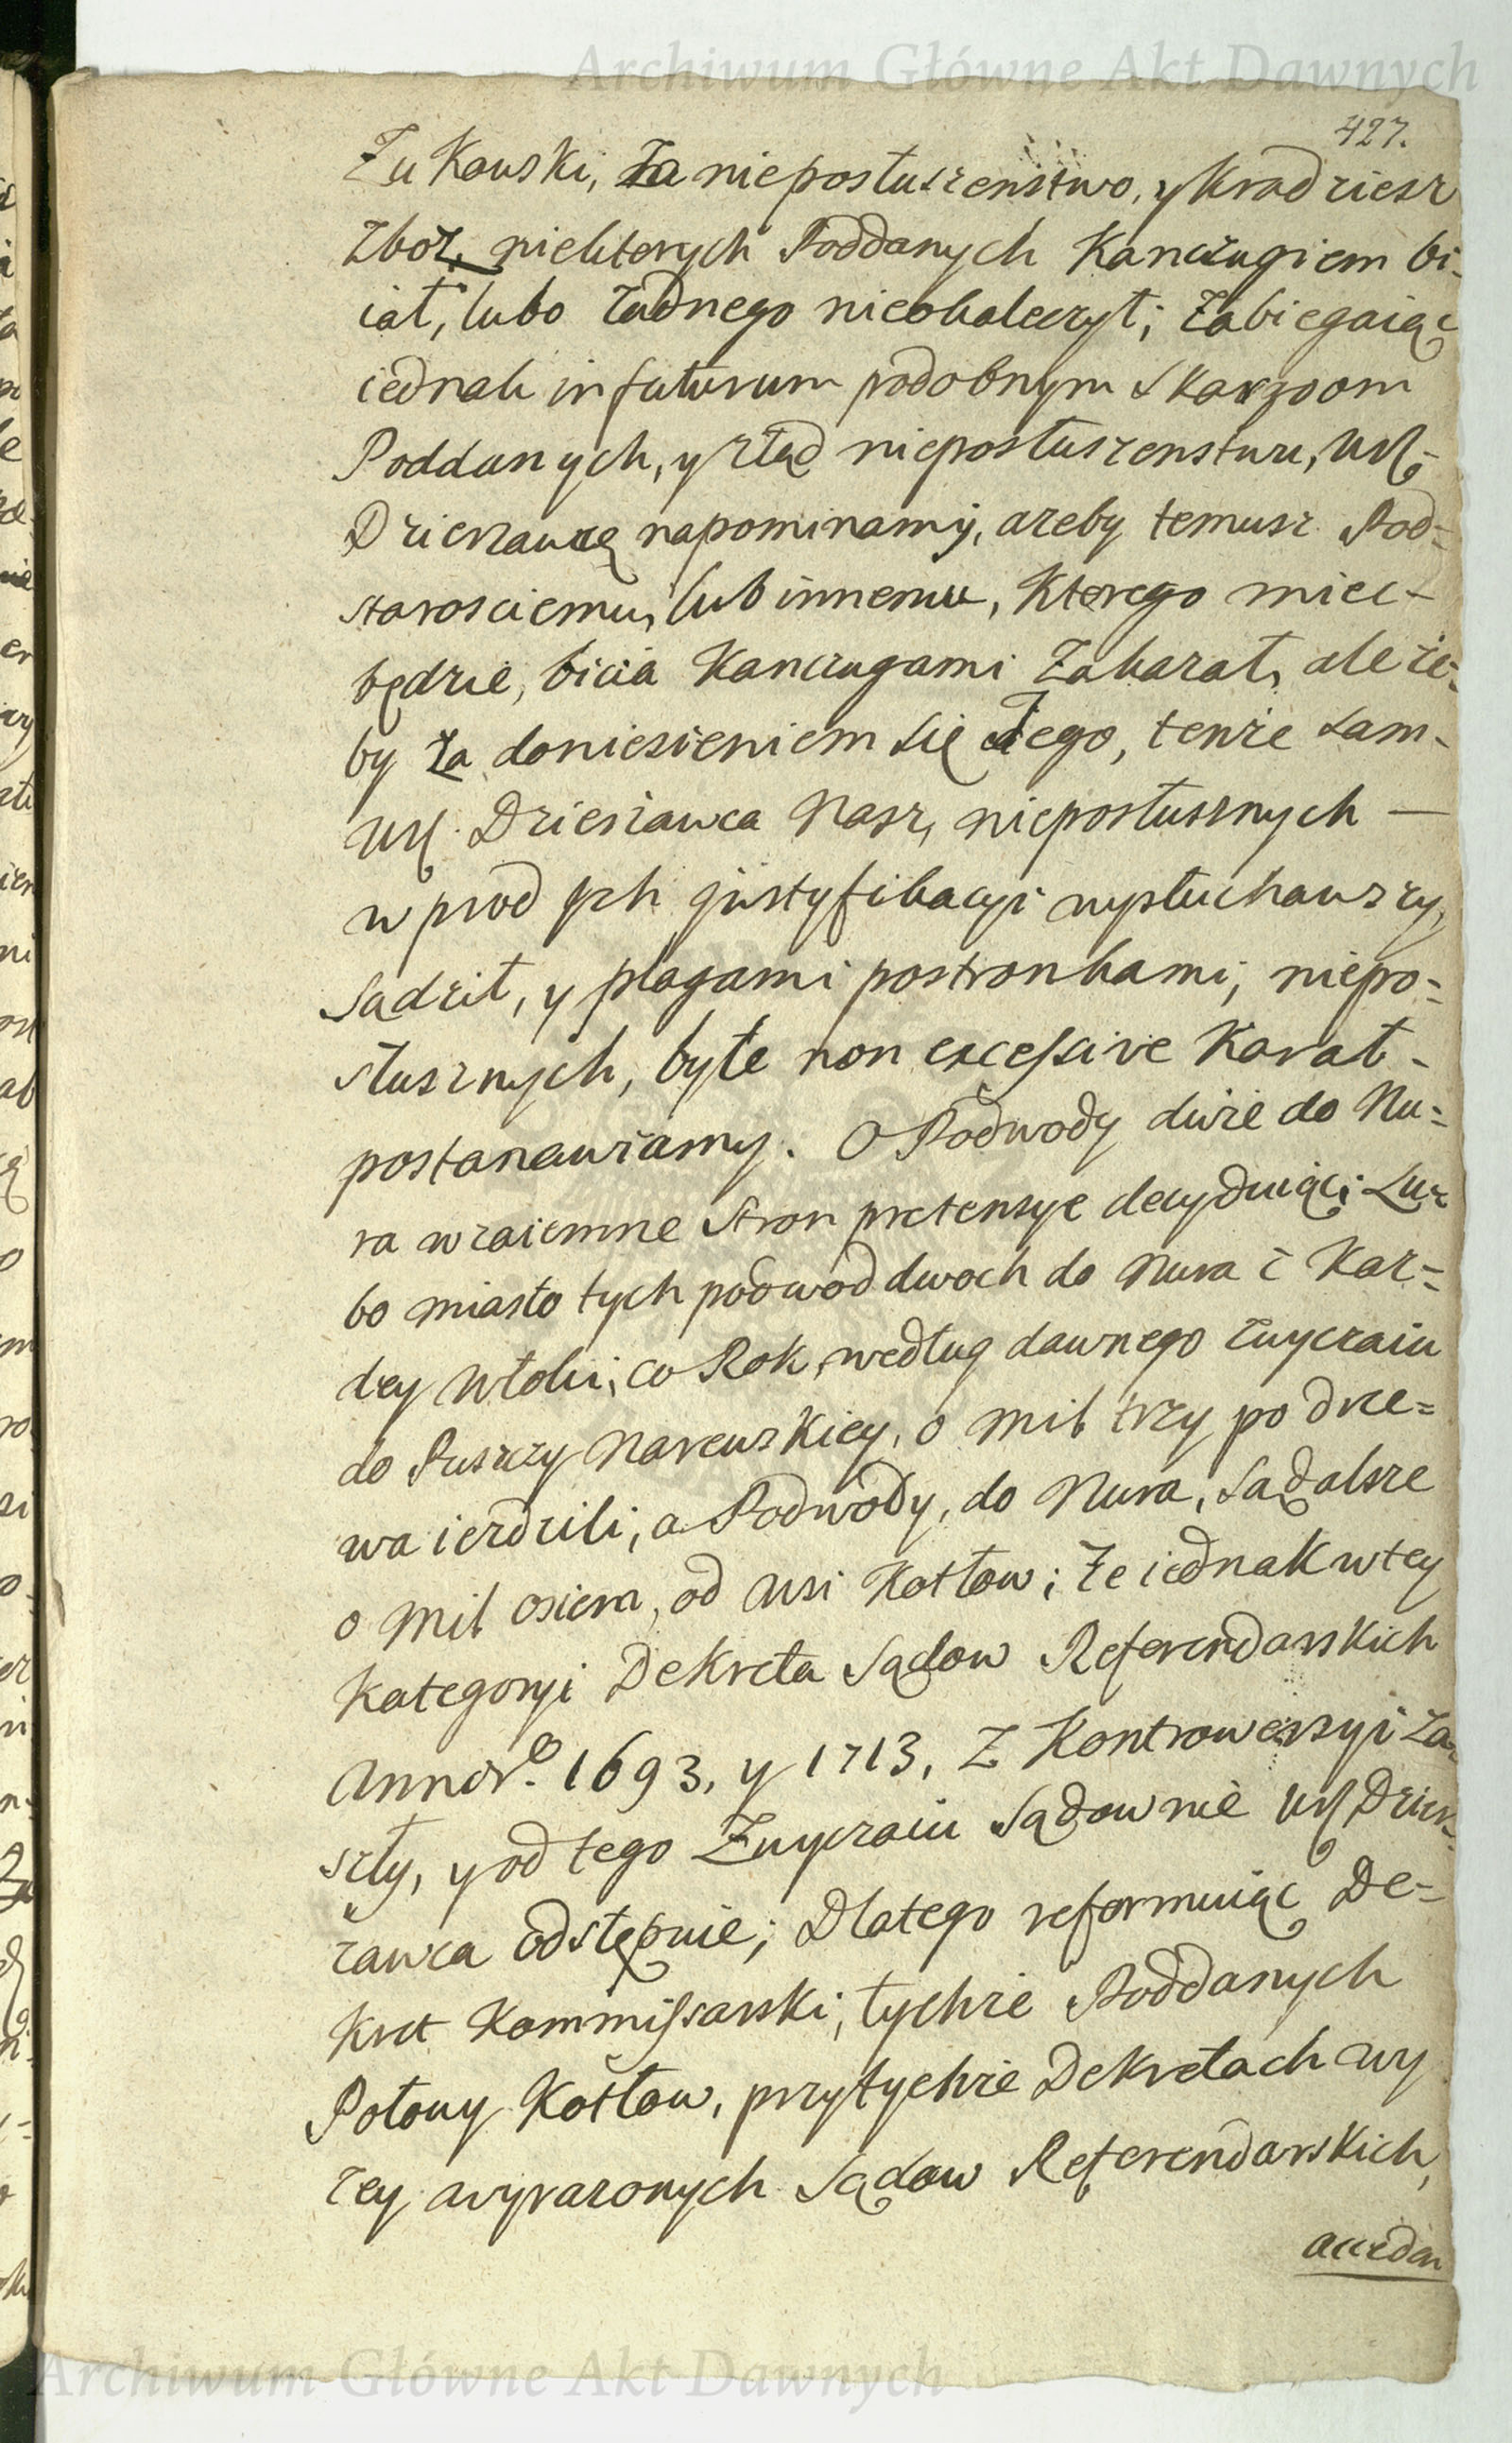 Archiwum Główne Akt Dawnych
427.
Zukowski, za nieposłuszenstwo, y kradziesz
zboz, niektorych Poddanych Kanczugiem bi-
iał, lubo zadnego nieokaleczył; zabiegaiąc
iednak in futurum podobnym skargom
Poddanych, y ztąd nieposłuszenstwu, Urſ.
Dzierzawcę napominamy, azeby temusz Pod-
starosciemu, lub innemu, ktorego miec-
będzie, bicia Kanczugami zakazał, ale ze-
by za doniesieniem się Jego, tenze sam-
Urſ. Dzierzawca Nasz, nieposłusznych —
wprod ych justyfikacyi wysłuchawszy,
sądził, y plagami postronkami, niepo-
słusznych, byle non exceſsive karał-
postanawiamy. O Podwody dwie do Nu-
ra wzaiemne stron pretensye decyduiąc; Lu-
bo miasto tych podwod dwoch do Nura z kaz-
dey włoki, co Rok, według dawnego zwyczaiu
do Puszczy Narewskiey, o mil trzy po drze-
wa iezdzili, a Podwody, do Nura, są dalsze
o mil osiem, od wsi Kotłow; Ze iednak w tey
kategoryi Dekreta Sądow Referendarskich
Annor. 1693, y 1713, z Kontrowersyi za-
szły, y od tego Zwyczaiu Sądownie Urſ Dzier-
zawca odstępuie; Dlatego reformuiąc De-
kret Kommiſsarski, tychze Poddanych
Połowy Kotłow, przytychze Dekretach wy
zey wyrazonych Sądow Referendarskich,
acceden
Archiwum Główne Akt Dawnych